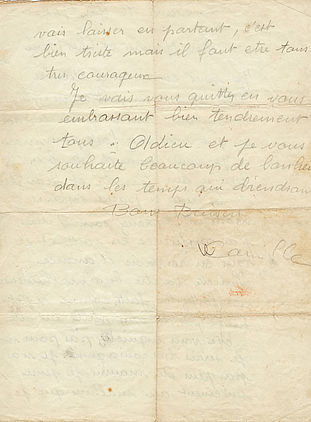 vais laisser en partant, c'est
bien triste mais il faut etre tous
tres courageux
Je vais vous quitter en vous
embrassant bien tendrement
tous. Adieu et je vous
souhaite beaucoup de bonheur
dans les temps qui viendront
Bons Baisers
Camille